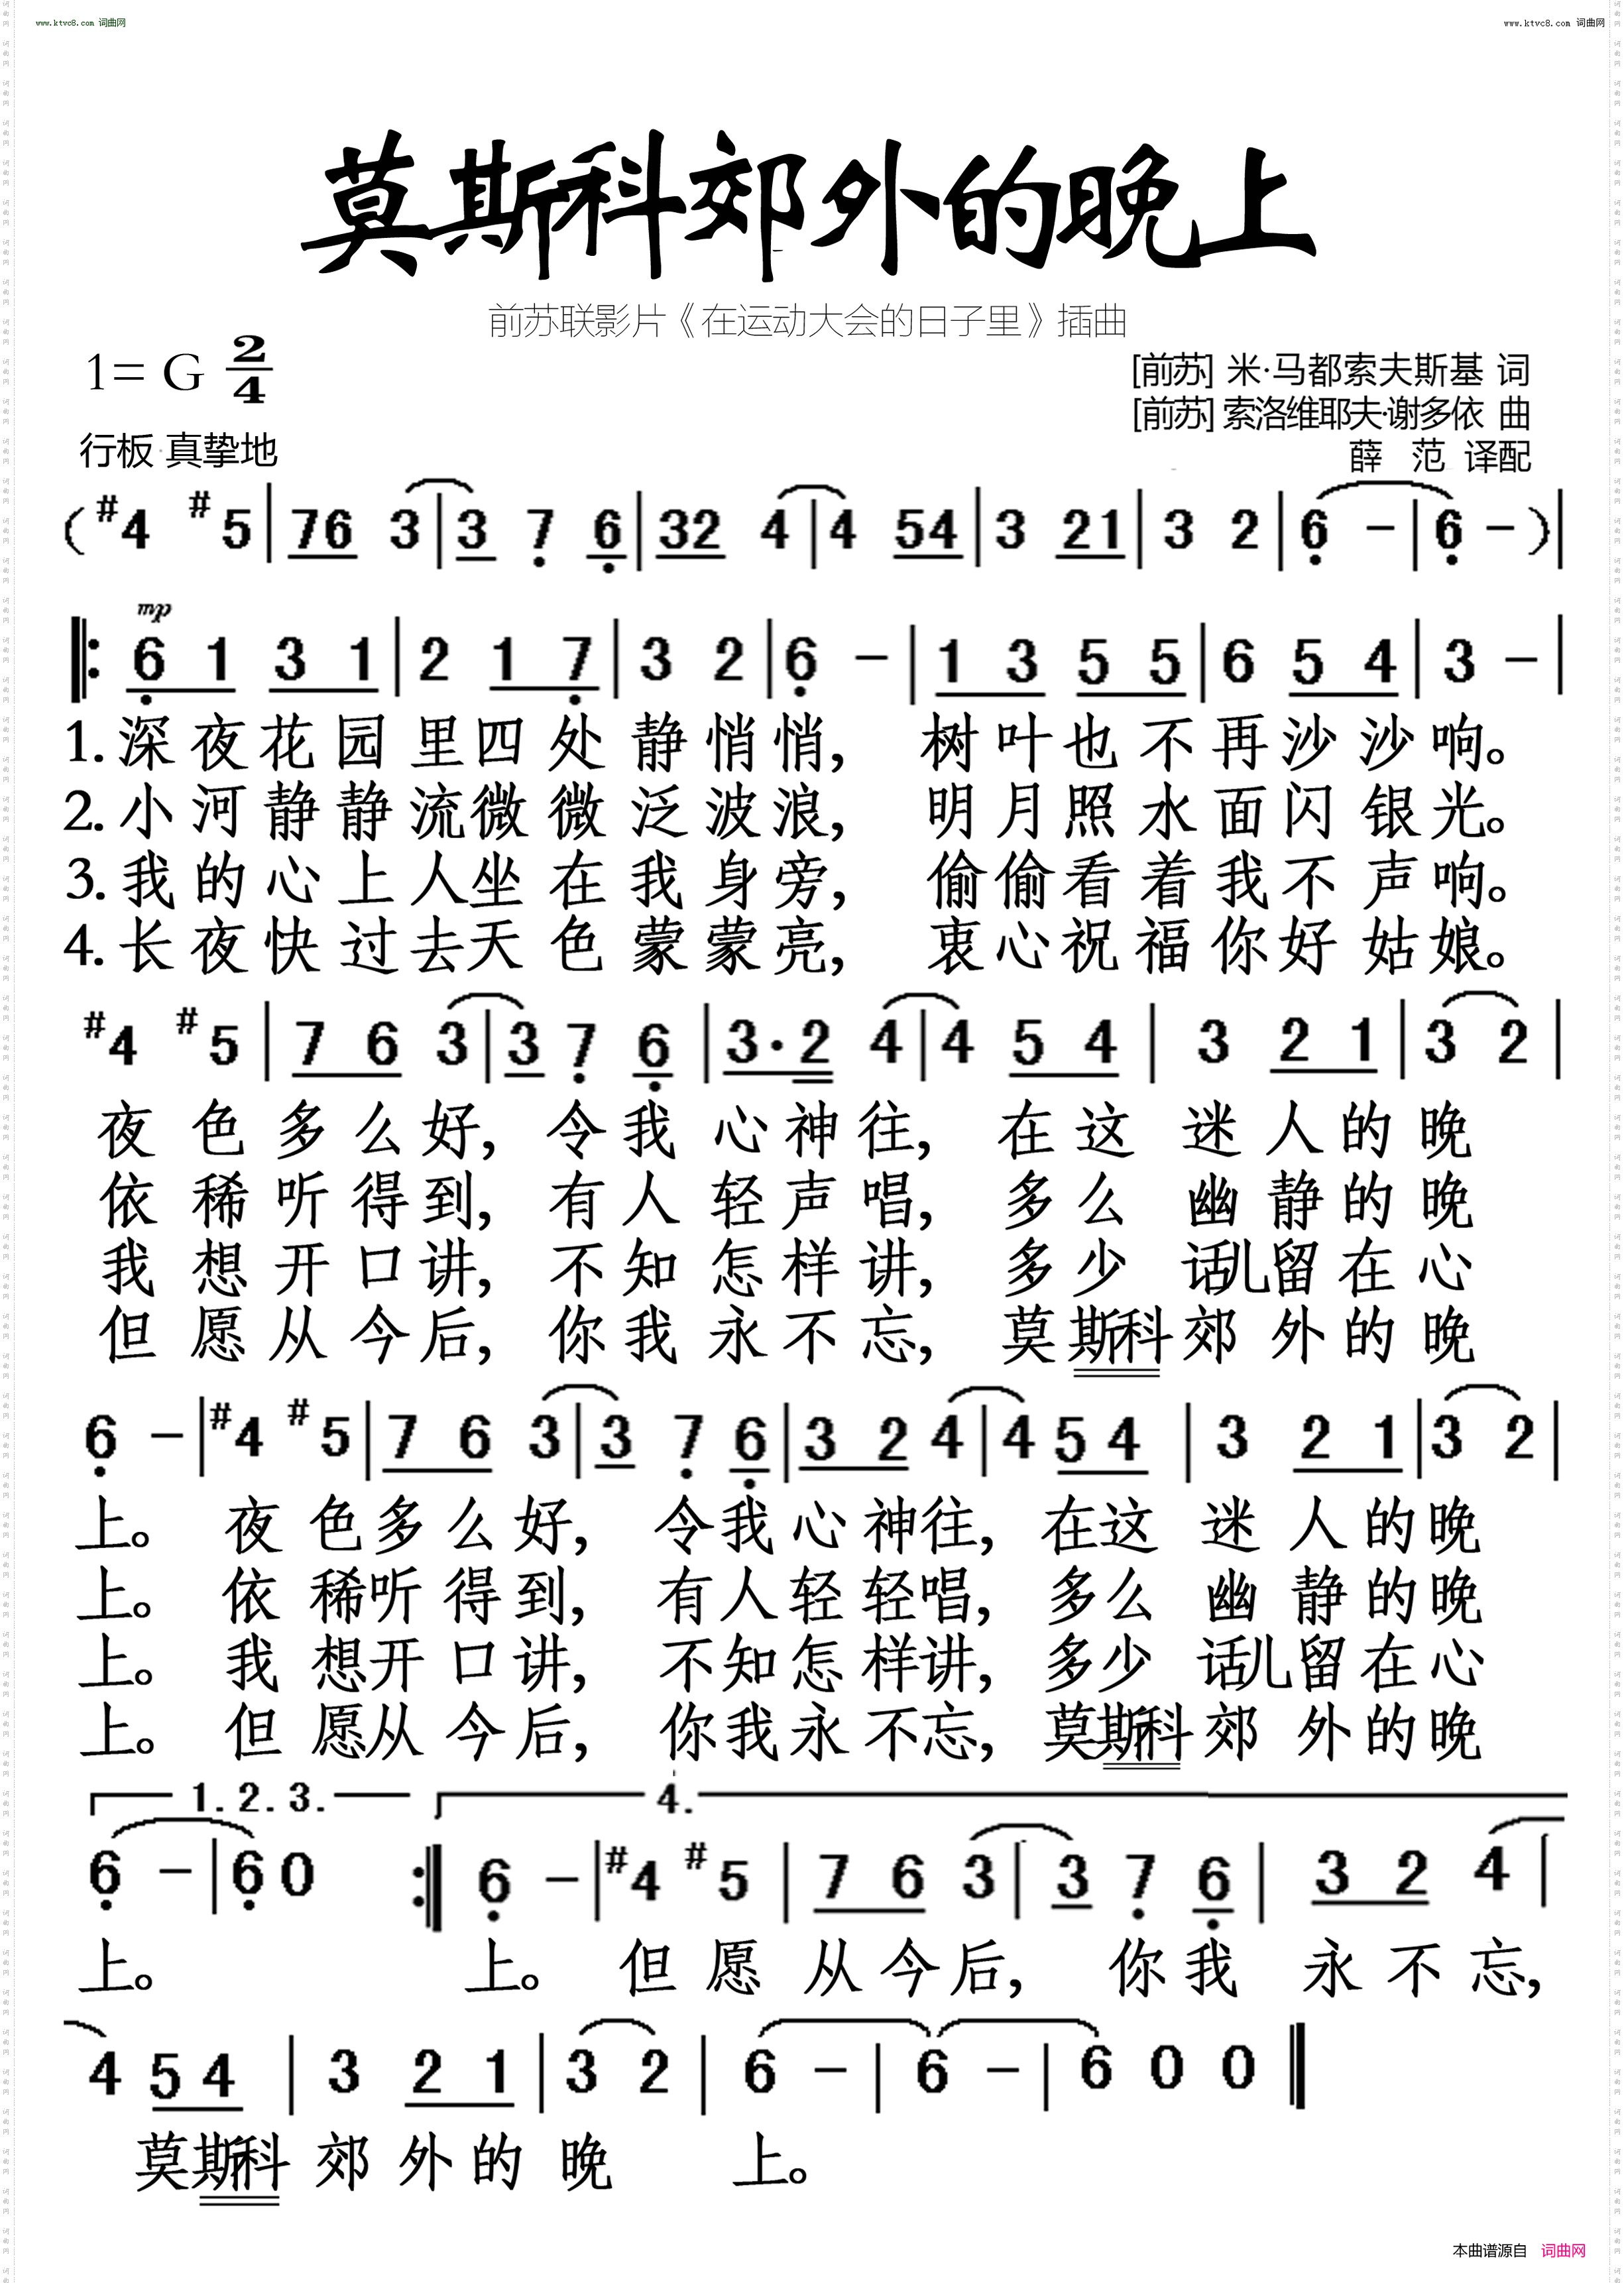 www.ktvc8.com 词曲网
www.ktvc8.com 词曲网
莫斯科郊外的晚上
前苏联影片《在运动大会的日子里》插曲
1= G 2/4
[前苏] 米·马都索夫斯基 词
[前苏] 索洛维耶夫·谢多依 曲
行板 真挚地
薛 范 译配
( #4 #5 | 76 3 | 3 7 6 | 32 4 | 4 54 | 3 21 | 3 2 | 6 - | 6 - ) |
mp
|: 6 1 3 1 | 2 1 7 | 3 2 | 6 - | 1 3 5 5 | 6 5 4 | 3 - |
1.深夜花园里四处静悄悄, 树叶也不再沙沙响。
2.小河静静流微微泛波浪, 明月照水面闪银光。
3.我的心上人坐在我身旁, 偷偷看着我不声响。
4.长夜快过去天色蒙蒙亮, 衷心祝福你好姑娘。
#4 #5 | 7 6 3 | 3 7 6 | 3·2 4 | 4 5 4 | 3 2 1 | 3 2 |
夜色多么好, 令我心神往, 在这迷人的晚
依稀听得到, 有人轻声唱, 多么幽静的晚
我想开口讲, 不知怎样讲, 多少话儿留在心
但愿从今后, 你我永不忘, 莫斯科郊外的晚
6 - | #4 #5 | 7 6 3 | 3 7 6 | 3 2 4 | 4 5 4 | 3 2 1 | 3 2 |
上。 夜色多么好, 令我心神往, 在这迷人的晚
上。 依稀听得到, 有人轻轻唱, 多么幽静的晚
上。 我想开口讲, 不知怎样讲, 多少话儿留在心
上。 但愿从今后, 你我永不忘, 莫斯科郊外的晚
1.2.3. 4.
6 - | 6 0 :| 6 - | #4 #5 | 7 6 3 | 3 7 6 | 3 2 4 |
上。 上。 但愿从今后, 你我永不忘,
4 5 4 | 3 2 1 | 3 2 | 6 - | 6 - | 6 0 0 ‖
莫斯科郊外的晚 上。
本曲谱源自 词曲网